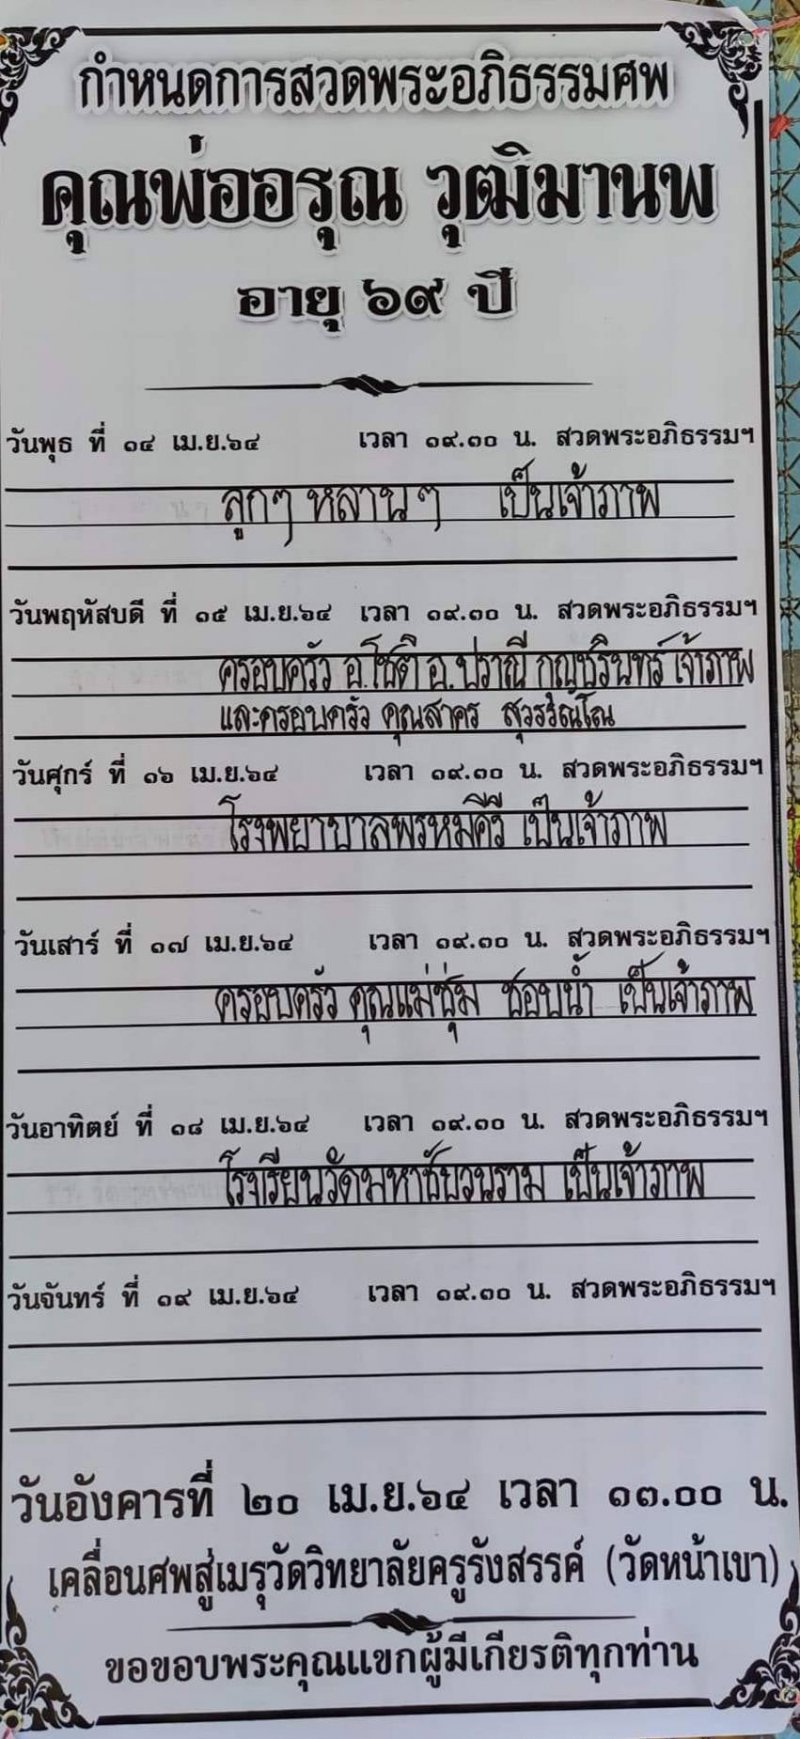 กำหนดการสวดพระอภิธรรมศพ
คุณพ่ออรุณ วุฒิมานพ
อายุ ๖๙ ปี
วันพุธ ที่ ๑๔ เม.ย.๖๔ เวลา ๑๙.๓๐ น. สวดพระอภิธรรมฯ
ลูกๆ หลานๆ เป็นเจ้าภาพ
วันพฤหัสบดี ที่ ๑๕ เม.ย.๖๔ เวลา ๑๙.๓๐ น. สวดพระอภิธรรมฯ
ครอบครัว อ.โชติ อ.ปราณี กุญชรินทร์ เจ้าภาพ
และครอบครัว คุณสาคร สุวรรณโณ
วันศุกร์ ที่ ๑๖ เม.ย.๖๔ เวลา ๑๙.๓๐ น. สวดพระอภิธรรมฯ
โรงพยาบาลพรหมคีรี เป็นเจ้าภาพ
วันเสาร์ ที่ ๑๗ เม.ย.๖๔ เวลา ๑๙.๓๐ น. สวดพระอภิธรรมฯ
ครอบครัว คุณแม่ชุ่ม ชอบน้ำ เป็นเจ้าภาพ
วันอาทิตย์ ที่ ๑๘ เม.ย.๖๔ เวลา ๑๙.๓๐ น. สวดพระอภิธรรมฯ
โรงเรียนวัดมหาชัยวนาราม เป็นเจ้าภาพ
วันจันทร์ ที่ ๑๙ เม.ย.๖๔ เวลา ๑๙.๓๐ น. สวดพระอภิธรรมฯ
วันอังคารที่ ๒๐ เม.ย.๖๔ เวลา ๑๓.๐๐ น.
เคลื่อนศพสู่เมรุวัดวิทยาลัยครูรังสรรค์ (วัดหน้าเขา)
ขอขอบพระคุณแขกผู้มีเกียรติทุกท่าน